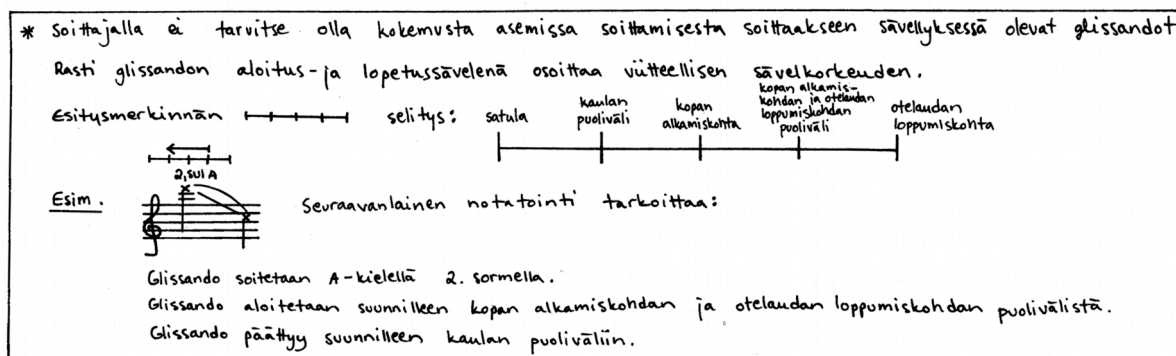 * Soittajalla ei tarvitse olla kokemusta asemissa soittamisesta soittaakseen sävellyksessä olevat glissandot
Rasti glissandon aloitus- ja lopetussävelenä osoittaa viitteellisen sävelkorkeuden.
Esitysmerkinnän selitys:
satula
kaulan puoliväli
kopan alkamiskohta
kopan alkamis-
kohdan ja otelaudan
loppumiskohdan
puoliväli
otelaudan
loppumiskohta
2, sul A
Esim. Seuraavanlainen notatointi tarkoittaa:
Glissando soitetaan A-kielellä 2. sormella.
Glissando aloitetaan suunnilleen kopan alkamiskohdan ja otelaudan loppumiskohdan puolivälistä.
Glissando päättyy suunnilleen kaulan puoliväliin.